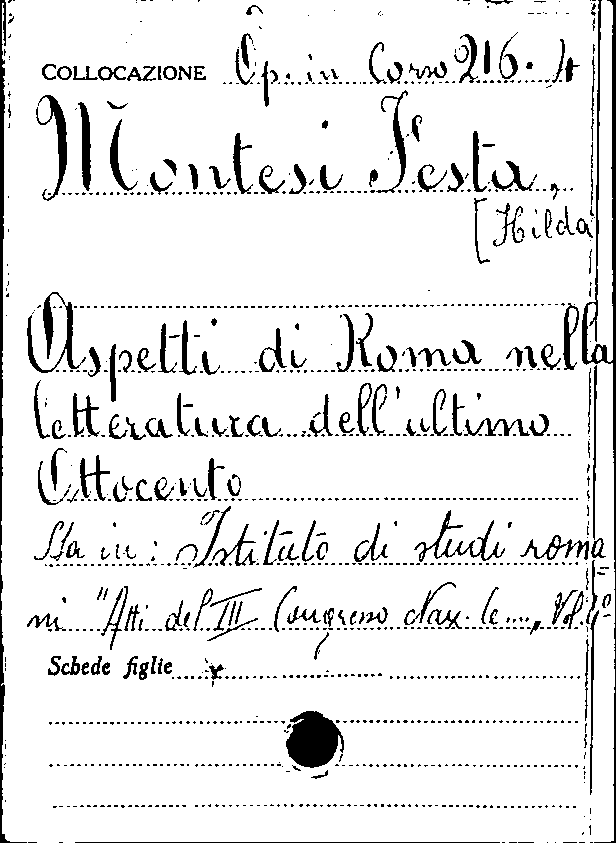 COLLOCAZIONE Op. in Corso 216. 4
Montesi Festa,
[Hilda
Aspetti di Roma nella
letteratura dell'ultimo
Ottocento
Sta in: Istituto di studi roma=
ni "Atti del III Congresso Naz. le...., Vol. 4º
Schede figlie